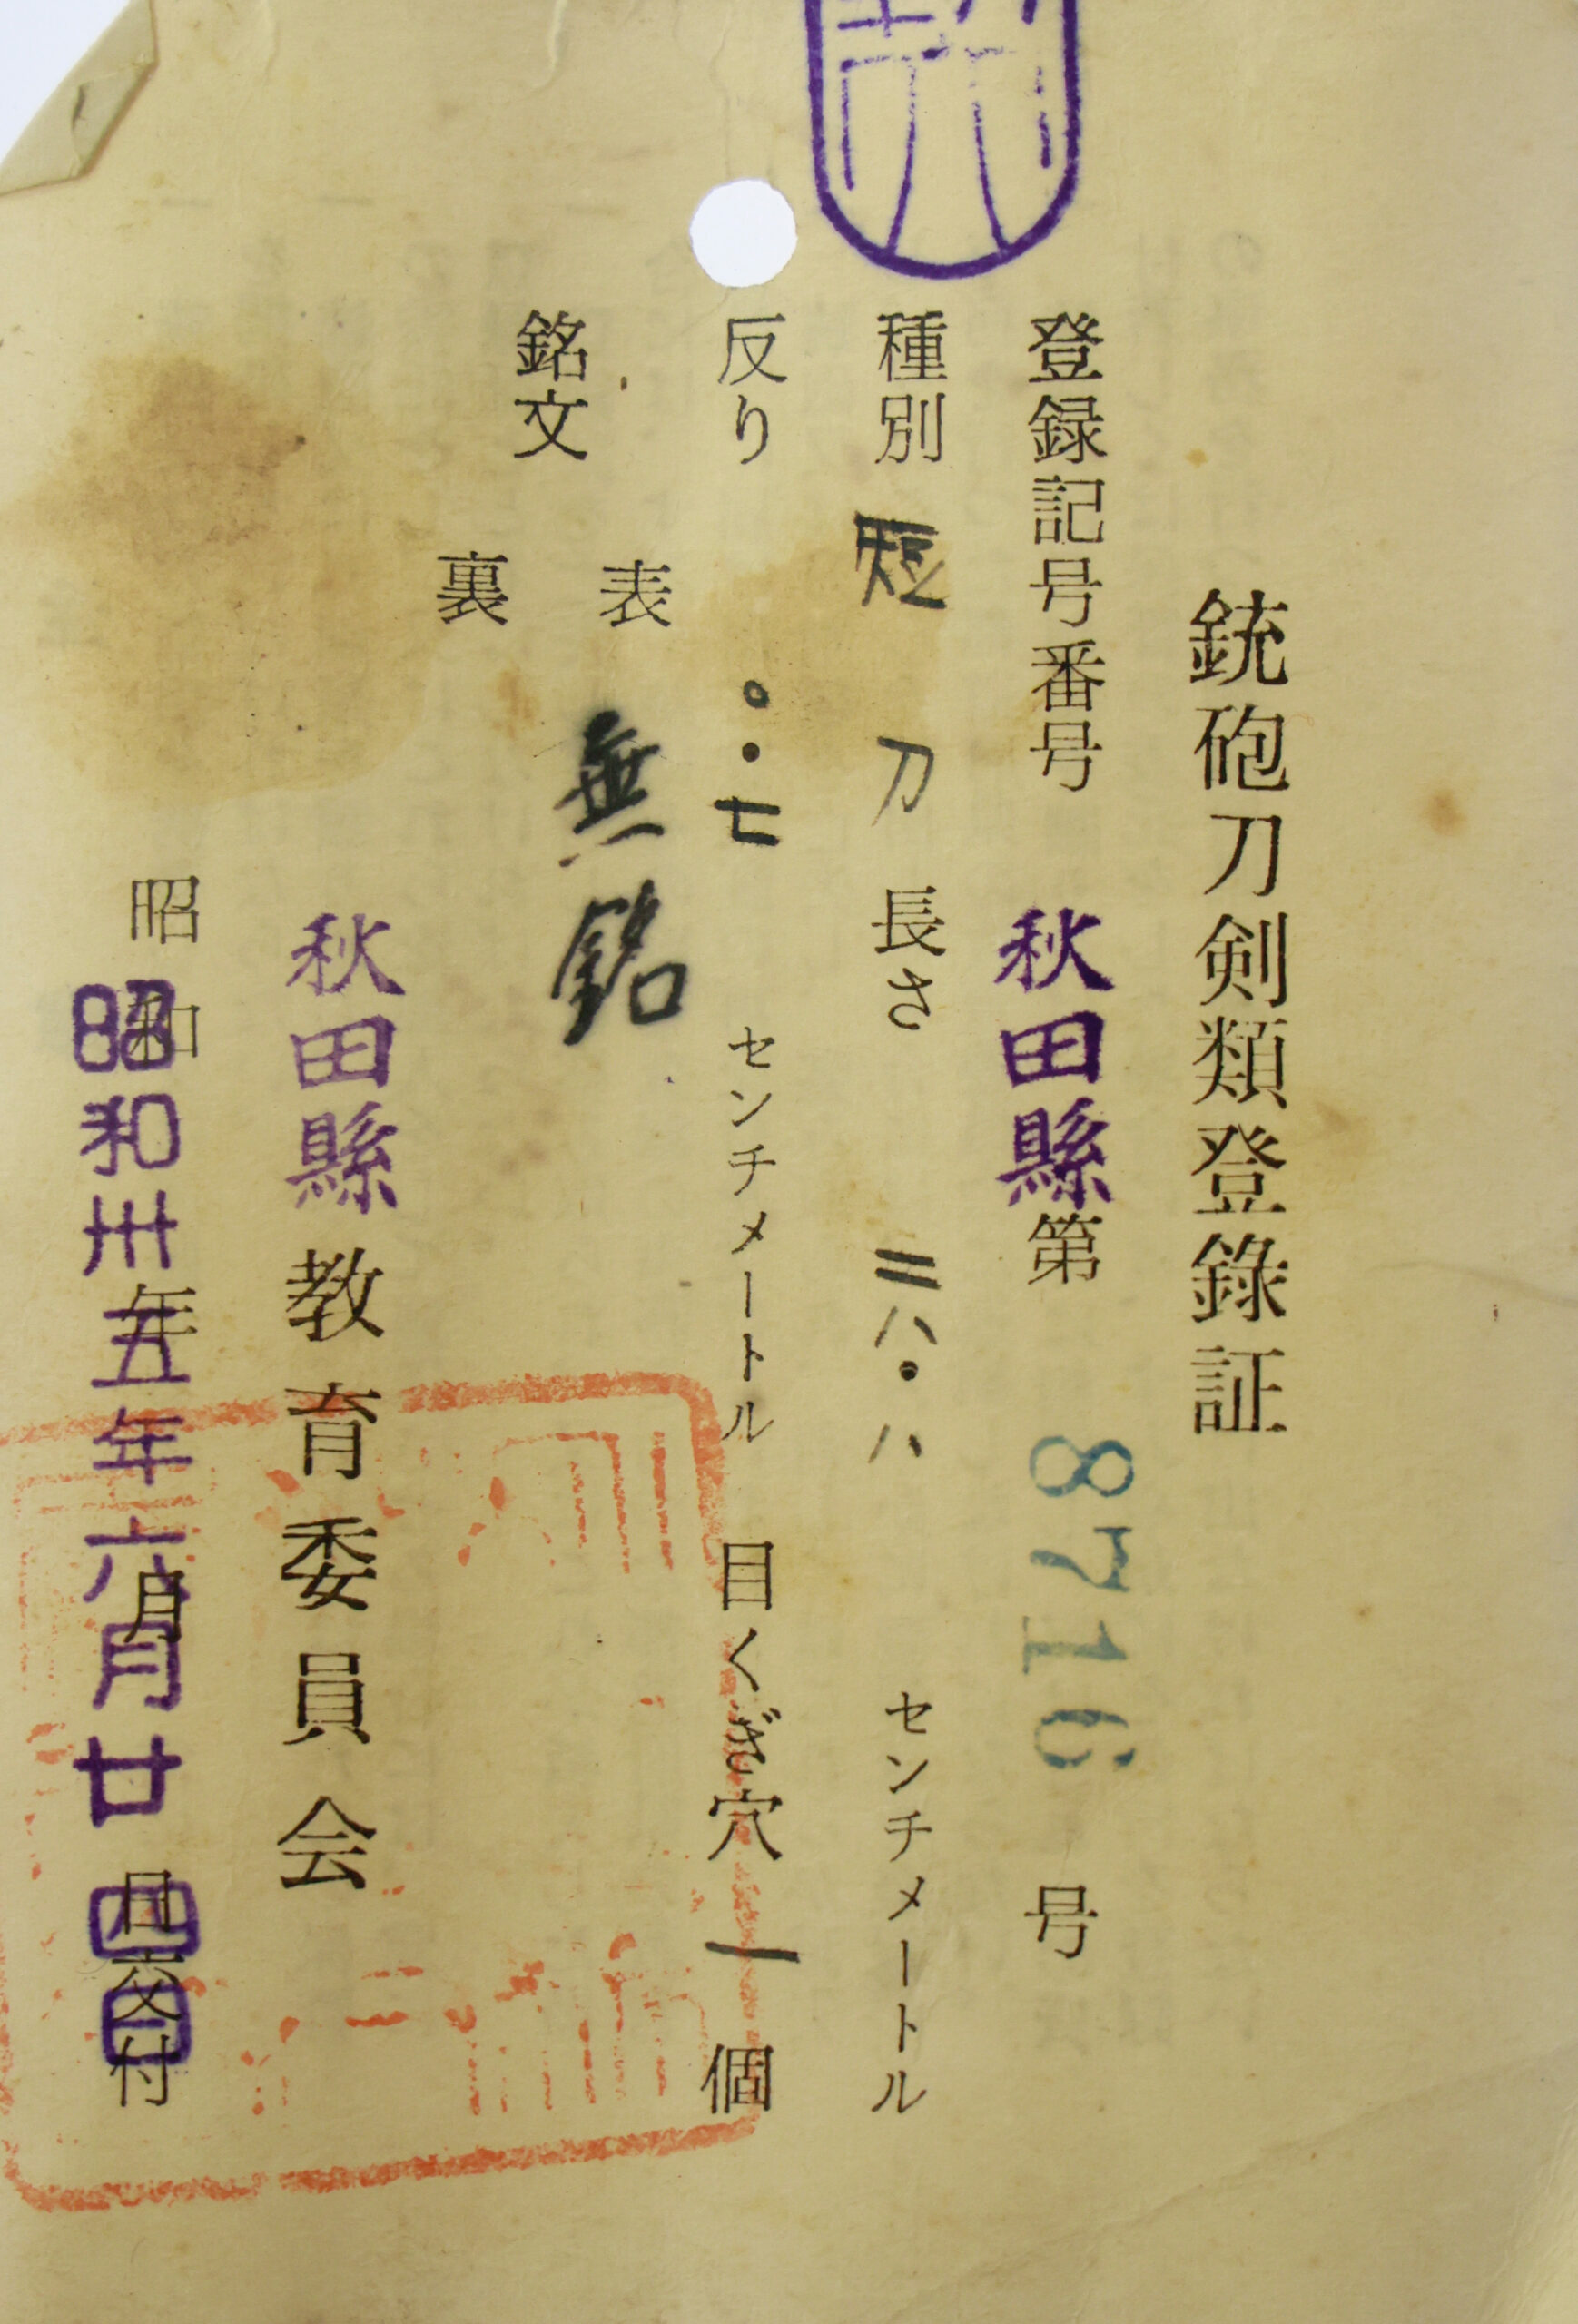 銃砲刀剣類登録証
登録記号番号 秋田縣第 8716 号
種別 短刀 長さ 二八・八 センチメートル
反り 〇・七 センチメートル 目くぎ穴 一 個
銘文 表 無銘
裏
秋田縣教育委員会
昭和 年 月 日交付
昭和卅五年六月廿四日